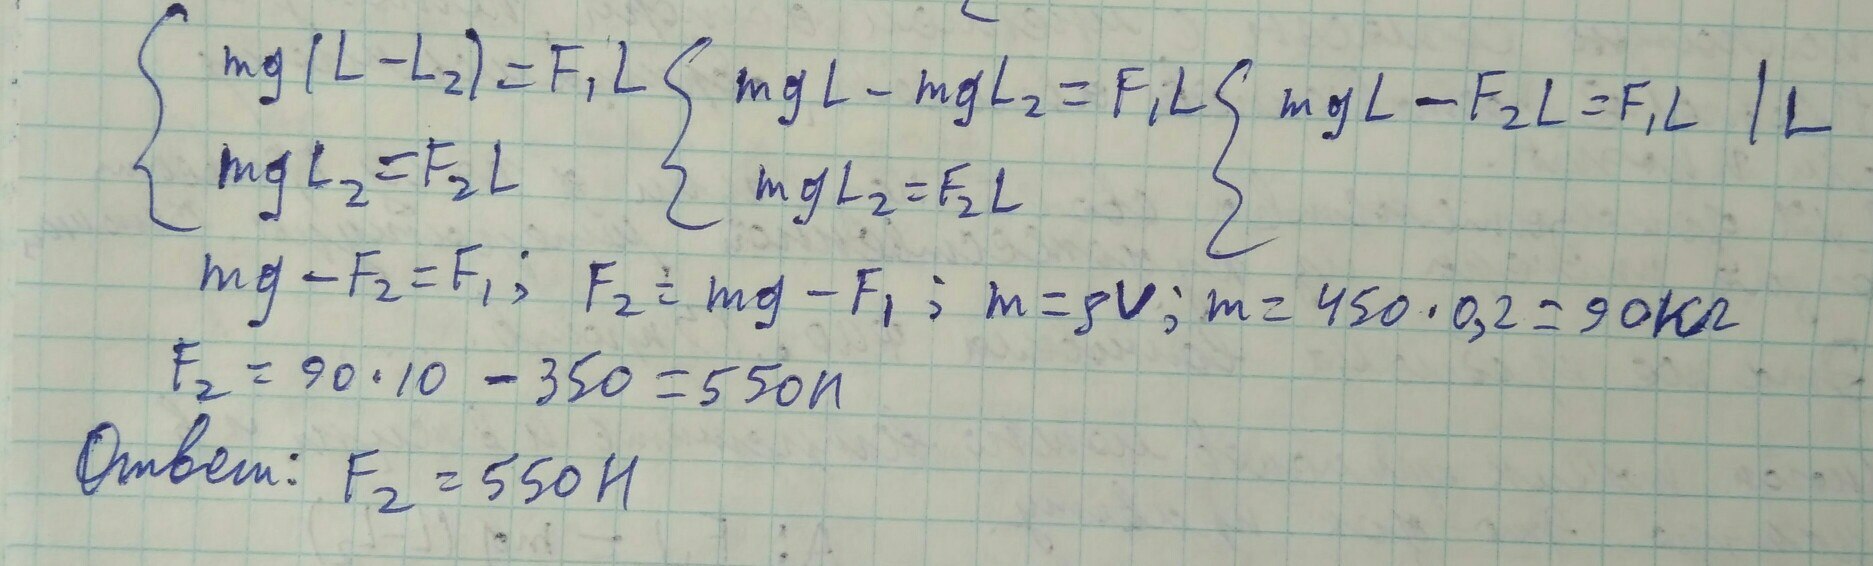 { mg(L-L₂)=F₁L { mgL-mgL₂=F₁L { mgL-F₂L=F₁L |L
mgL₂=F₂L mgL₂=F₂L
mg-F₂=F₁; F₂=mg-F₁; m=ρV; m=450·0,2=90кг
F₂=90·10-350=550Н
Ответ: F₂=550Н